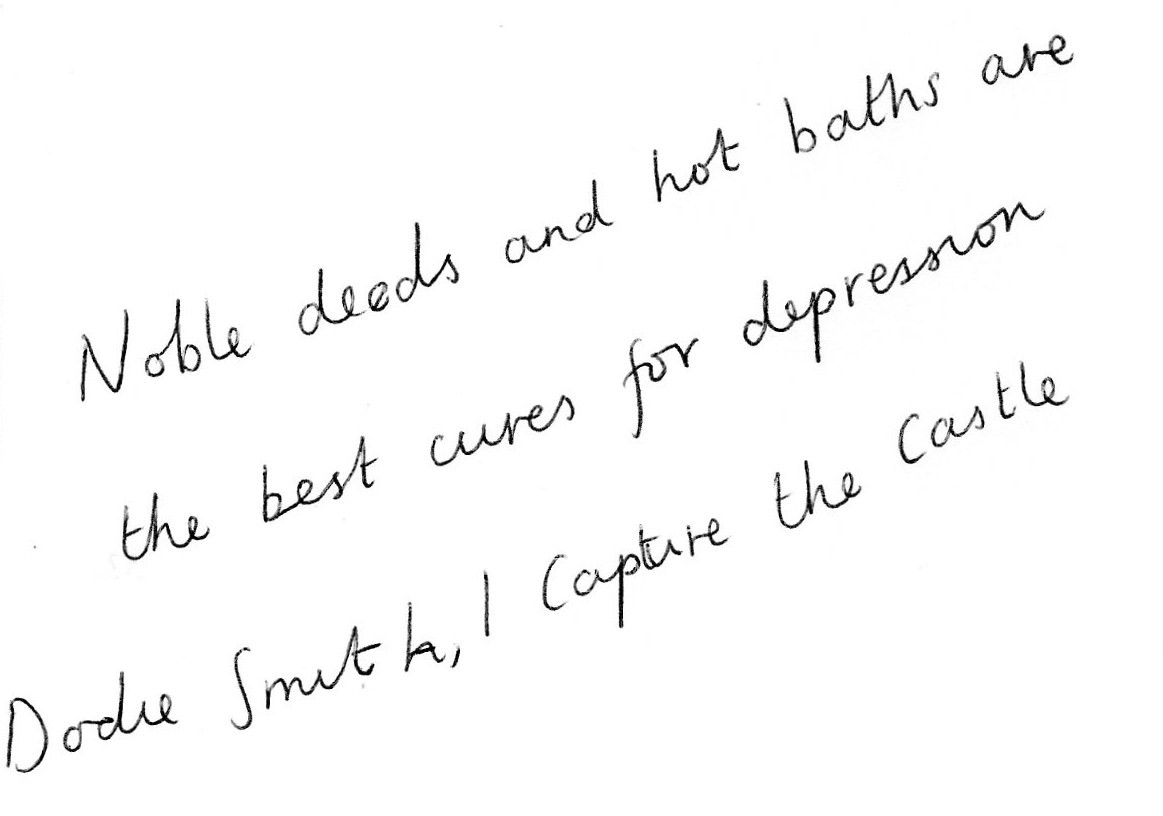 Noble deeds and hot baths are
the best cures for depression
Dodie Smith, I Capture the Castle